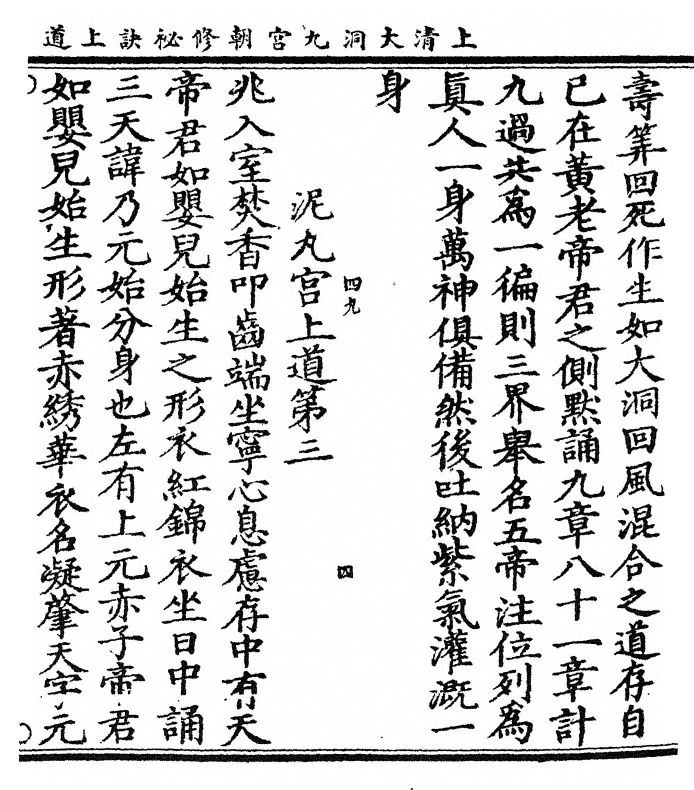 上清大洞九宮朝修祕訣上道
壽筭回死作生如大洞回風混合之道存自
已在黃老帝君之側默誦九章八十一章計
九過共為一徧則三界舉名五帝注位列為
真人一身萬神俱備然後吐納紫氣灌溉一
身
四九
四
泥丸宮上道第三
兆入室焚香叩齒端坐寧心息慮存中有天
帝君如嬰兒始生之形衣紅錦衣坐日中誦
三天諱乃元始分身也左有上元赤子帝君
如嬰兒始生形著赤綉華衣名凝肇天字元